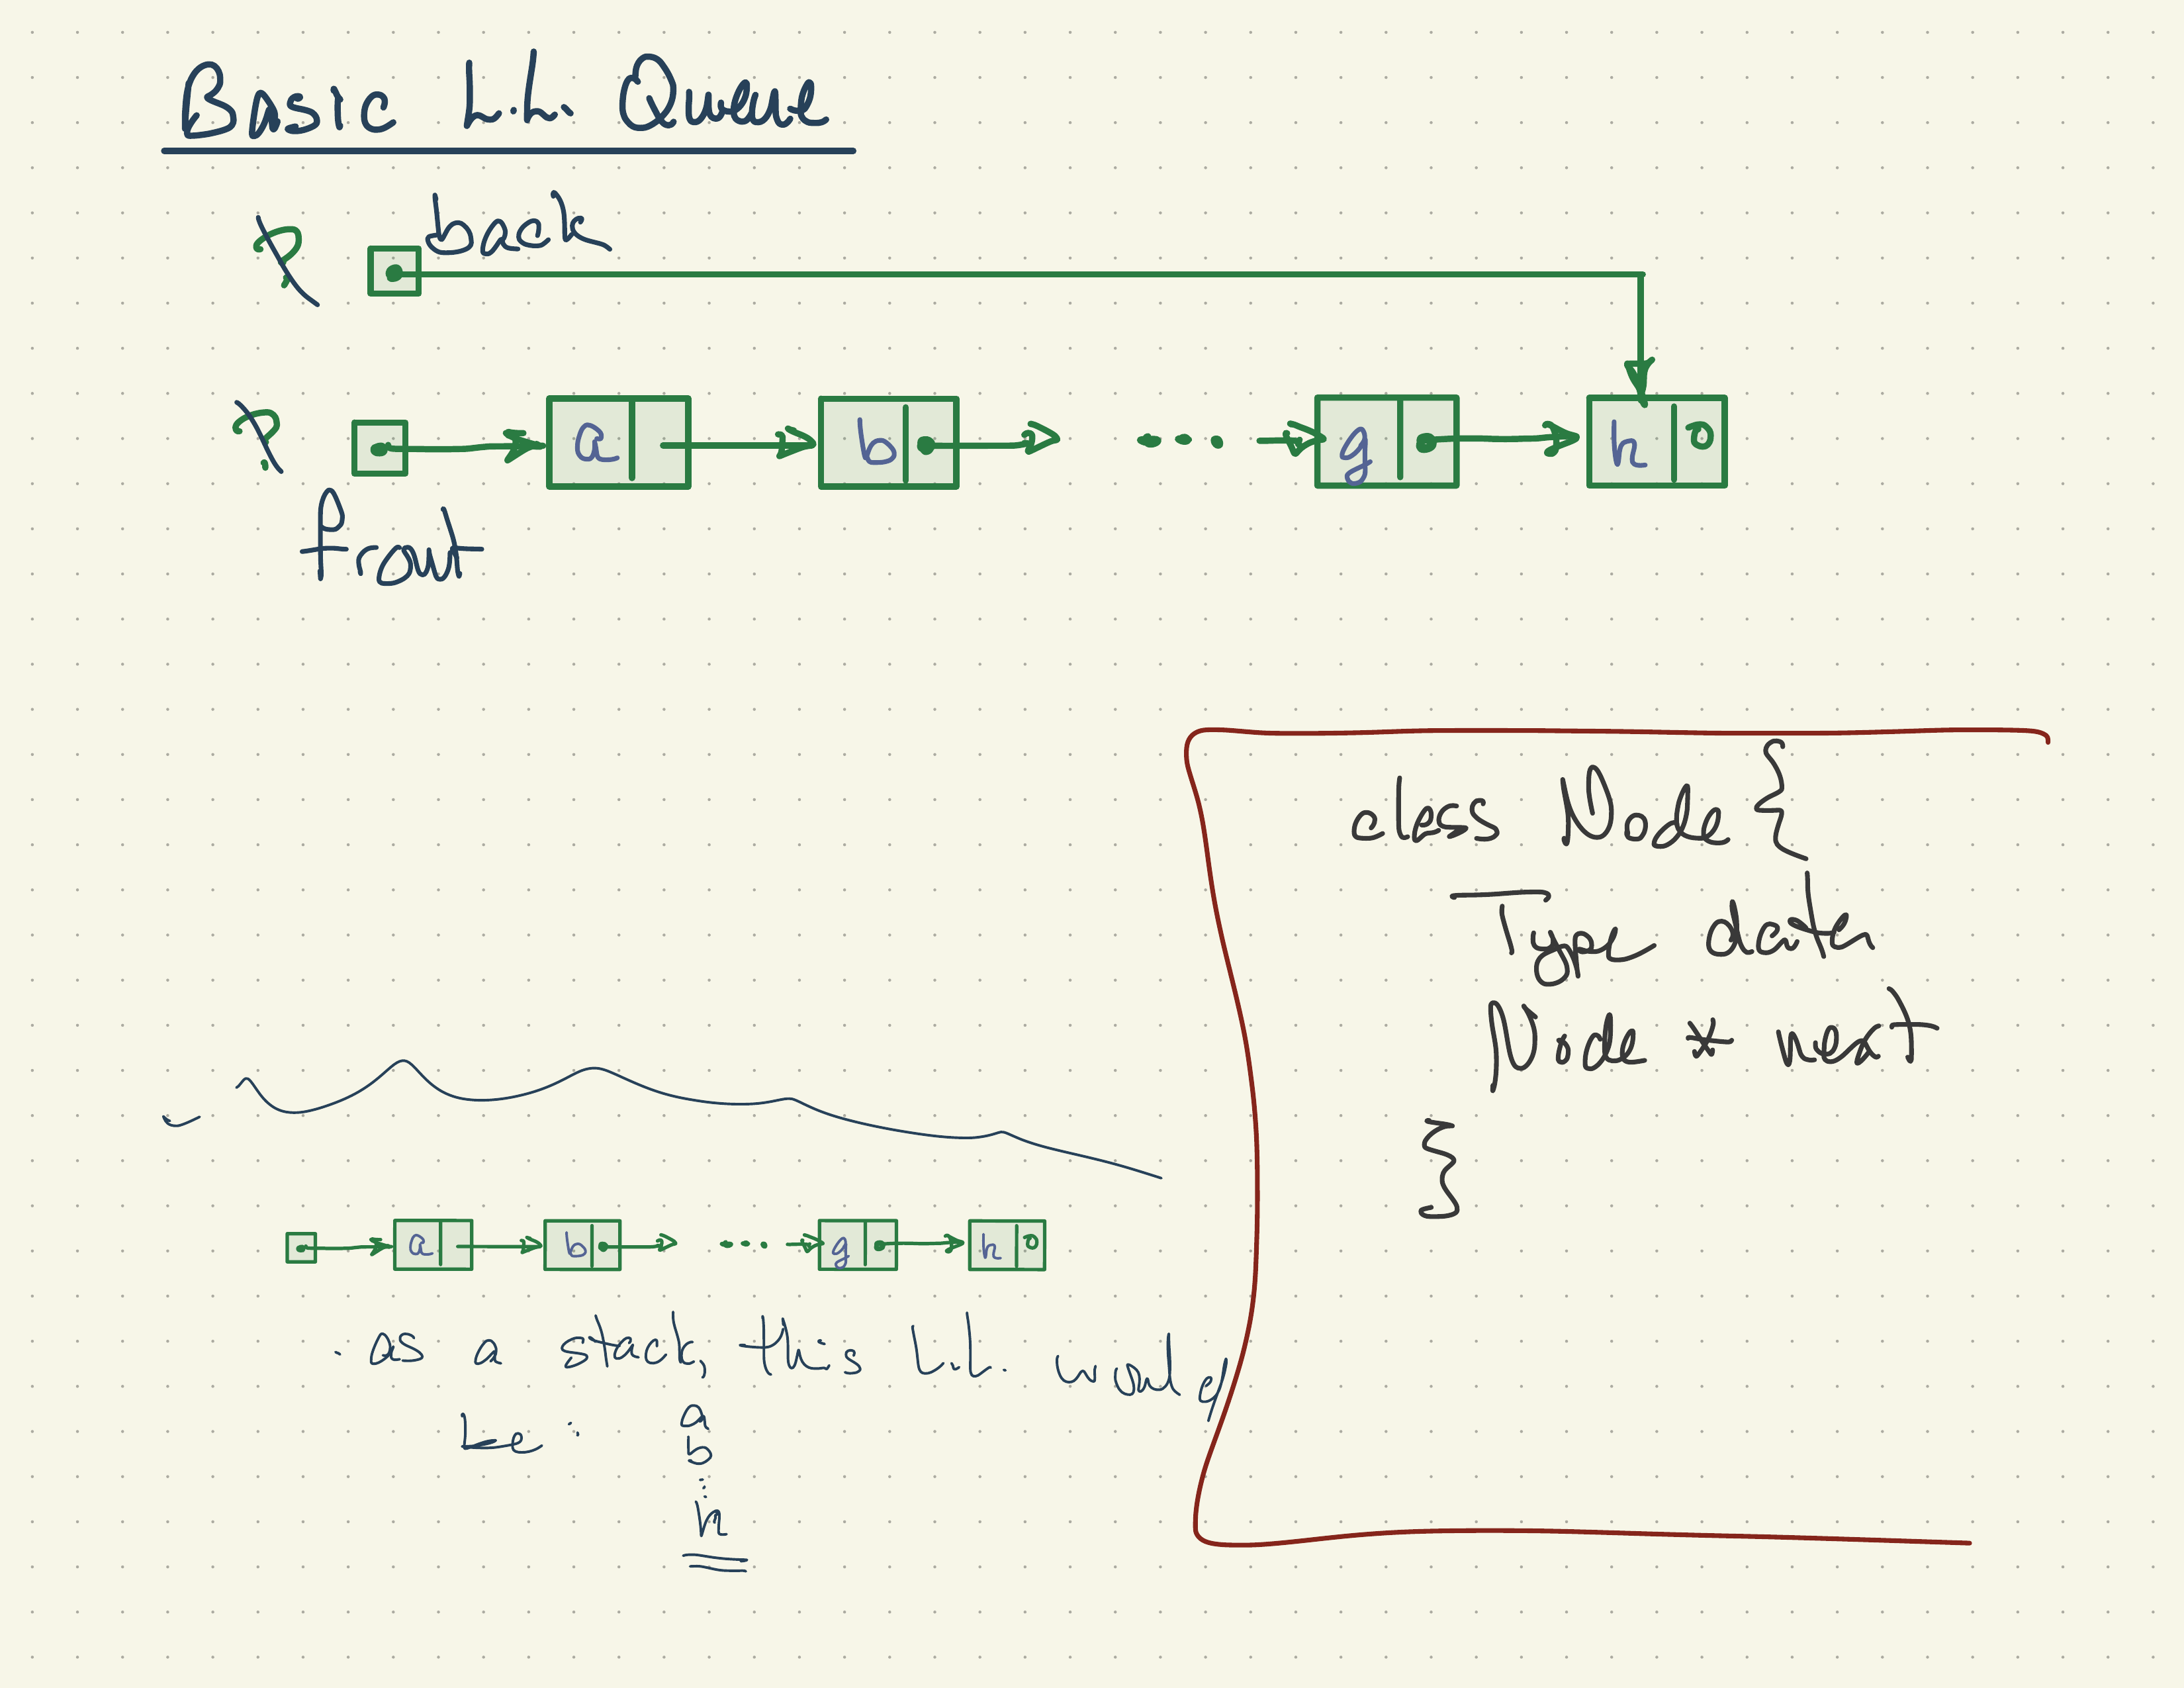 Basic L.L. Queue
?
back
?
a b ... g h
front
class Node {
Type data
Node * next
}
a b ... g h
- as a stack, this L.L. would
be : a
b
⋮
h